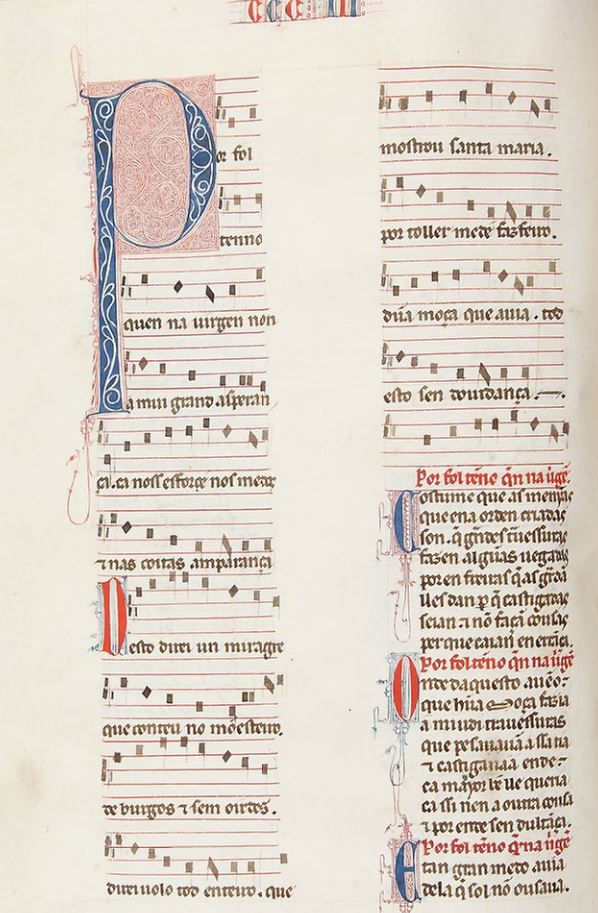 CCCIII
Por fol
tenno
quen na uirgen non
a mui grand asperan
ça.ca noss esforçe nos medꝫ
⁊ nas coitas amparança
Desto direi un miragre
que conteu no mõesteiro.
de burgos ⁊ sem oirdes.
direi uolo tod enteiro. que
mostrou santa maria.
por toller medẽ faz feito.
dũa moça que auia. tod
esto sen dourdança.
Por fol tẽno qn̄ na ũgẽ
Costume que as menỹas
que ena orden criadas
son. q̃ grãdes trauessuras
fazen algũas uegadas
por en freiras q̃ as grãa
lles dan p̃ q̃ castigadas
seian ⁊ nõ façã cousas
per que caian en errãça.
Por fol tẽno qn̄ na ũgẽ
Onde daquesto auẽo:
que hũa moça fazia
a miudi trauessuras
que pesauan a ssa tia
⁊ castigaua a ende:
ca mayor bẽ lle queria
ca ssi nen a outra cousa
⁊ por ende sen dultãça.
Por fol tẽno qn̄ na ũgẽ
E tan gran medo auia
dela q̃ sol nõ ousaua.